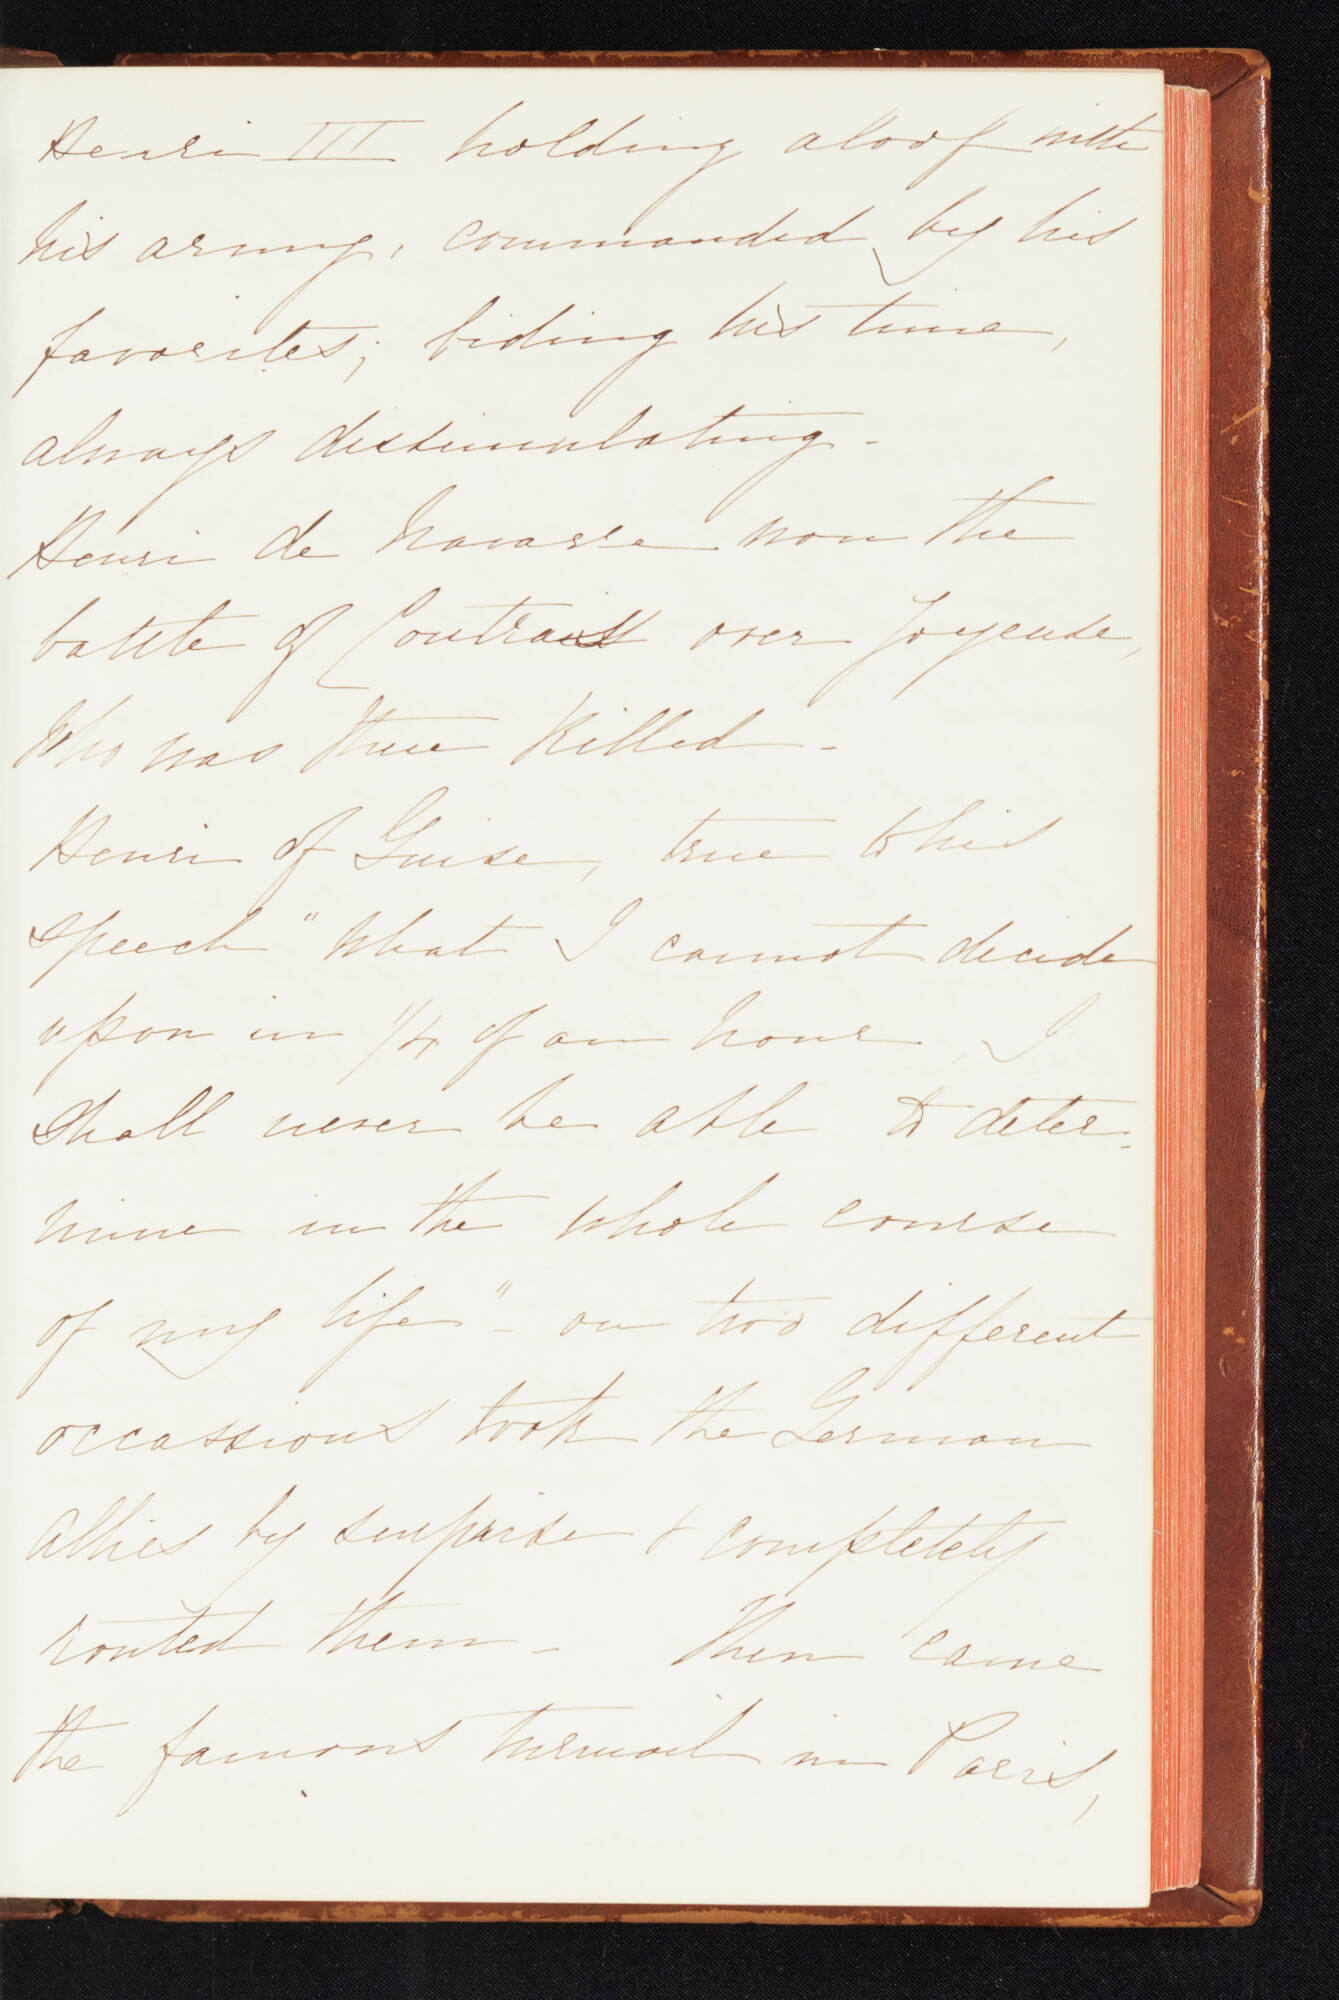 Henri III holding aloof with
his army, commanded by his
favorites; biding his time,
always dissimulating -
Henri de Navarre won the
battle of Coutrass over Joyeuse,
Who was there killed -
Henri of Guise, true to his
speech "What I cannot decide
upon in 1/4 of an hour, I
shall never be able to deter-
mine in the whole course
of my life" - on two different
occassions took the German
Allies by surprise & completely
routed them - Then came
the famous turmoil in Paris,